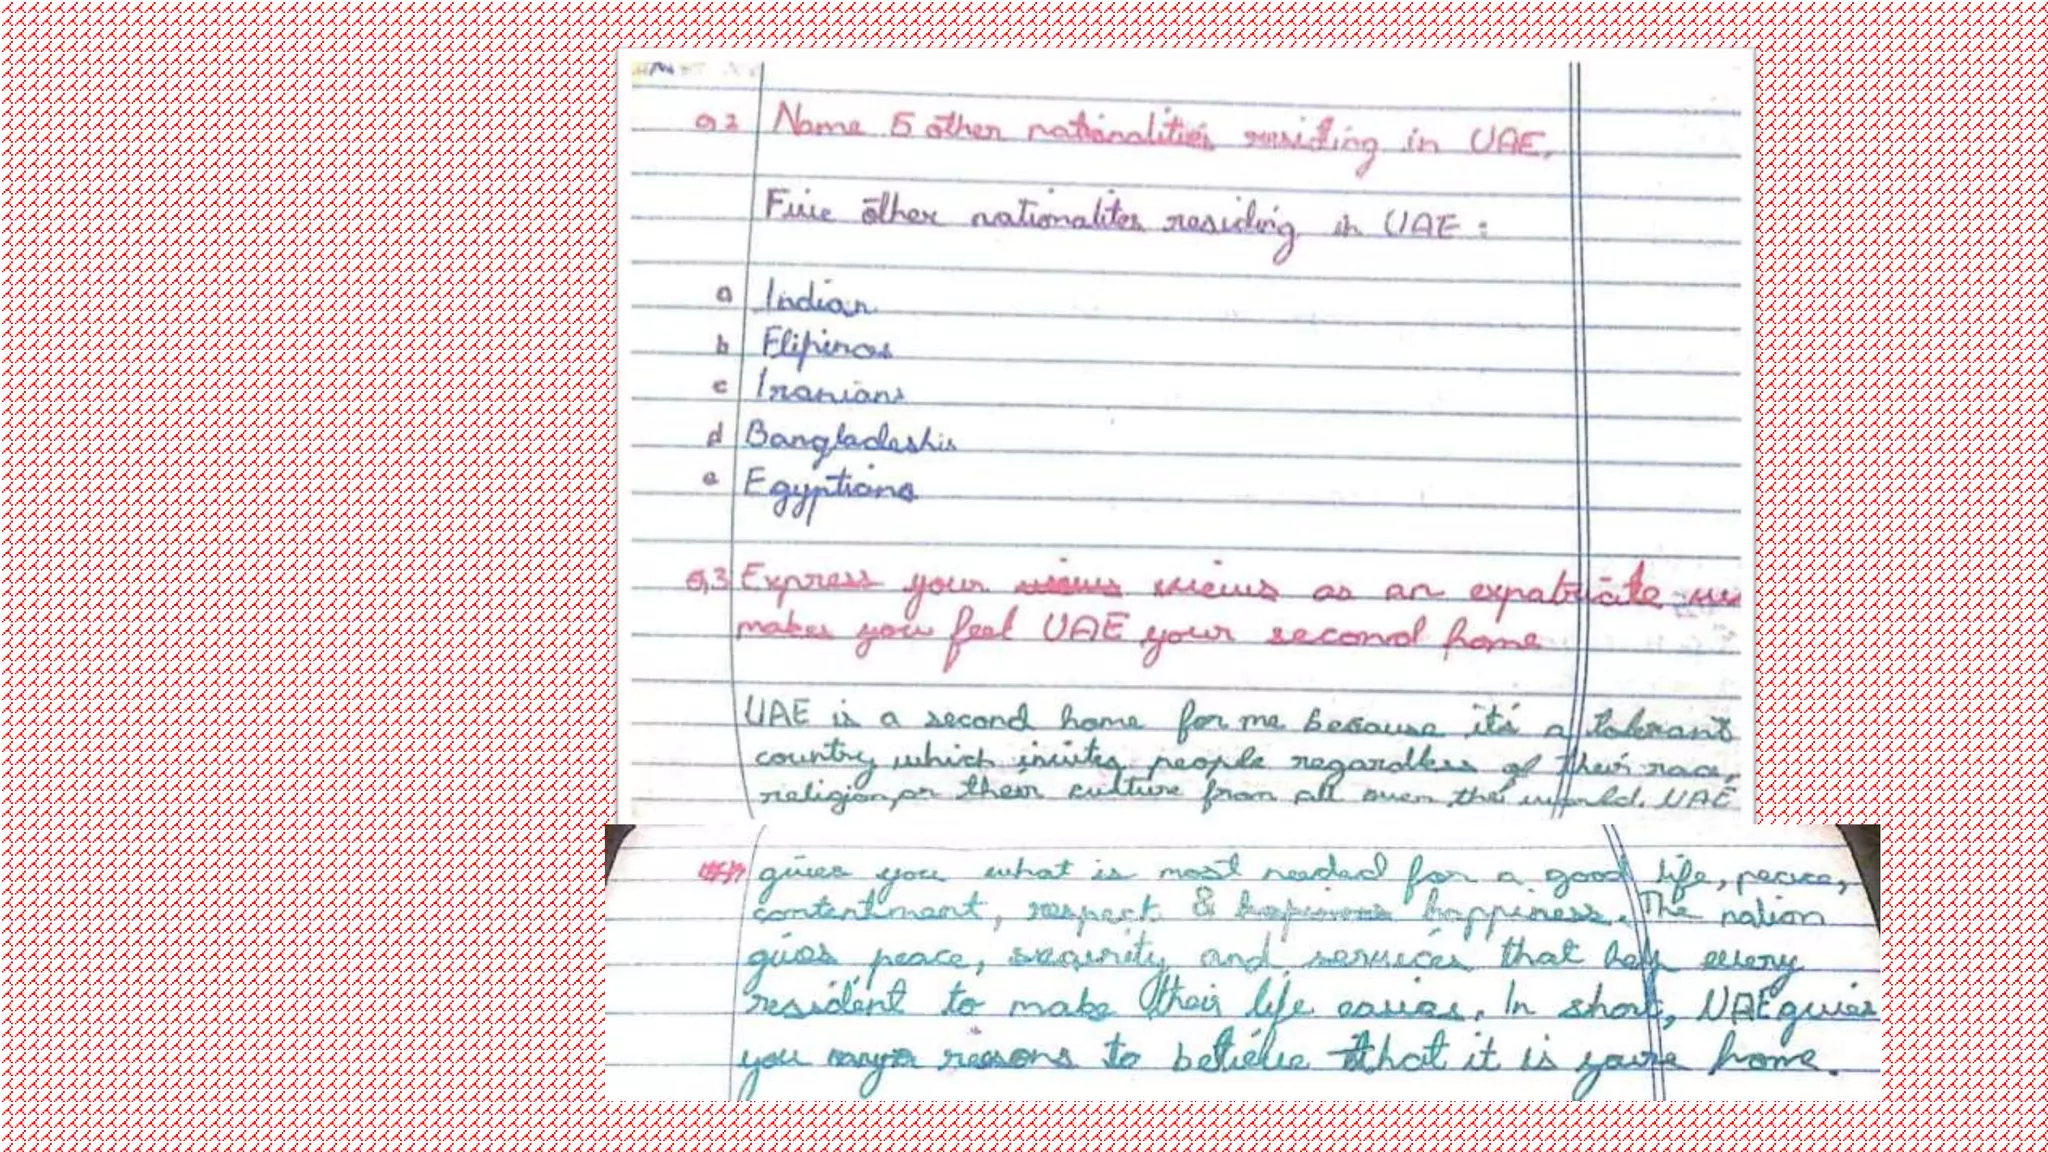 Q2 Name 5 other nationalities residing in UAE.
Five other nationalites residing in UAE :
a Indian
b Flipinos
c Iranians
d Bangladeshis
e Egyptians
Q.3 Express your views views as an expatricte
makes you feel UAE your second home
UAE is a second home for me because it's a tolerant
country which invites people regardless of their race,
religion, or their culture from all over the world. UAE
gives you what is most needed for a good life, peace,
contentment, respect & happiness. The nation
gives peace, security and services that help every
resident to make their life easier. In short, UAE gives
you reasons to believe that it is your home.